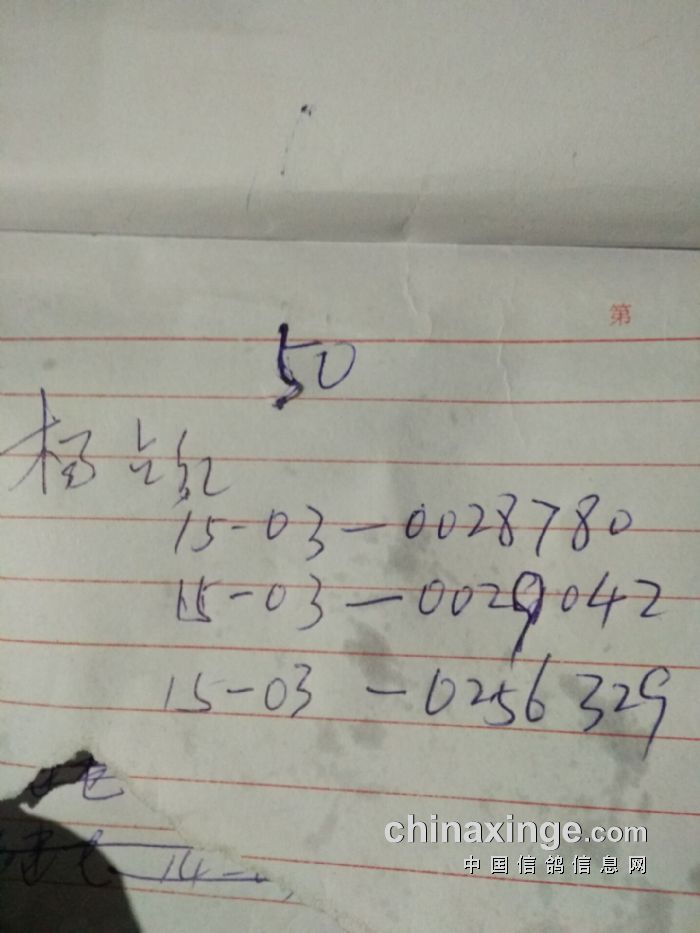 第
50
杨
15-03-0028780
15-03-0029042
15-03 -0256329
14-
chinaxinge.com
中国信鸽信息网